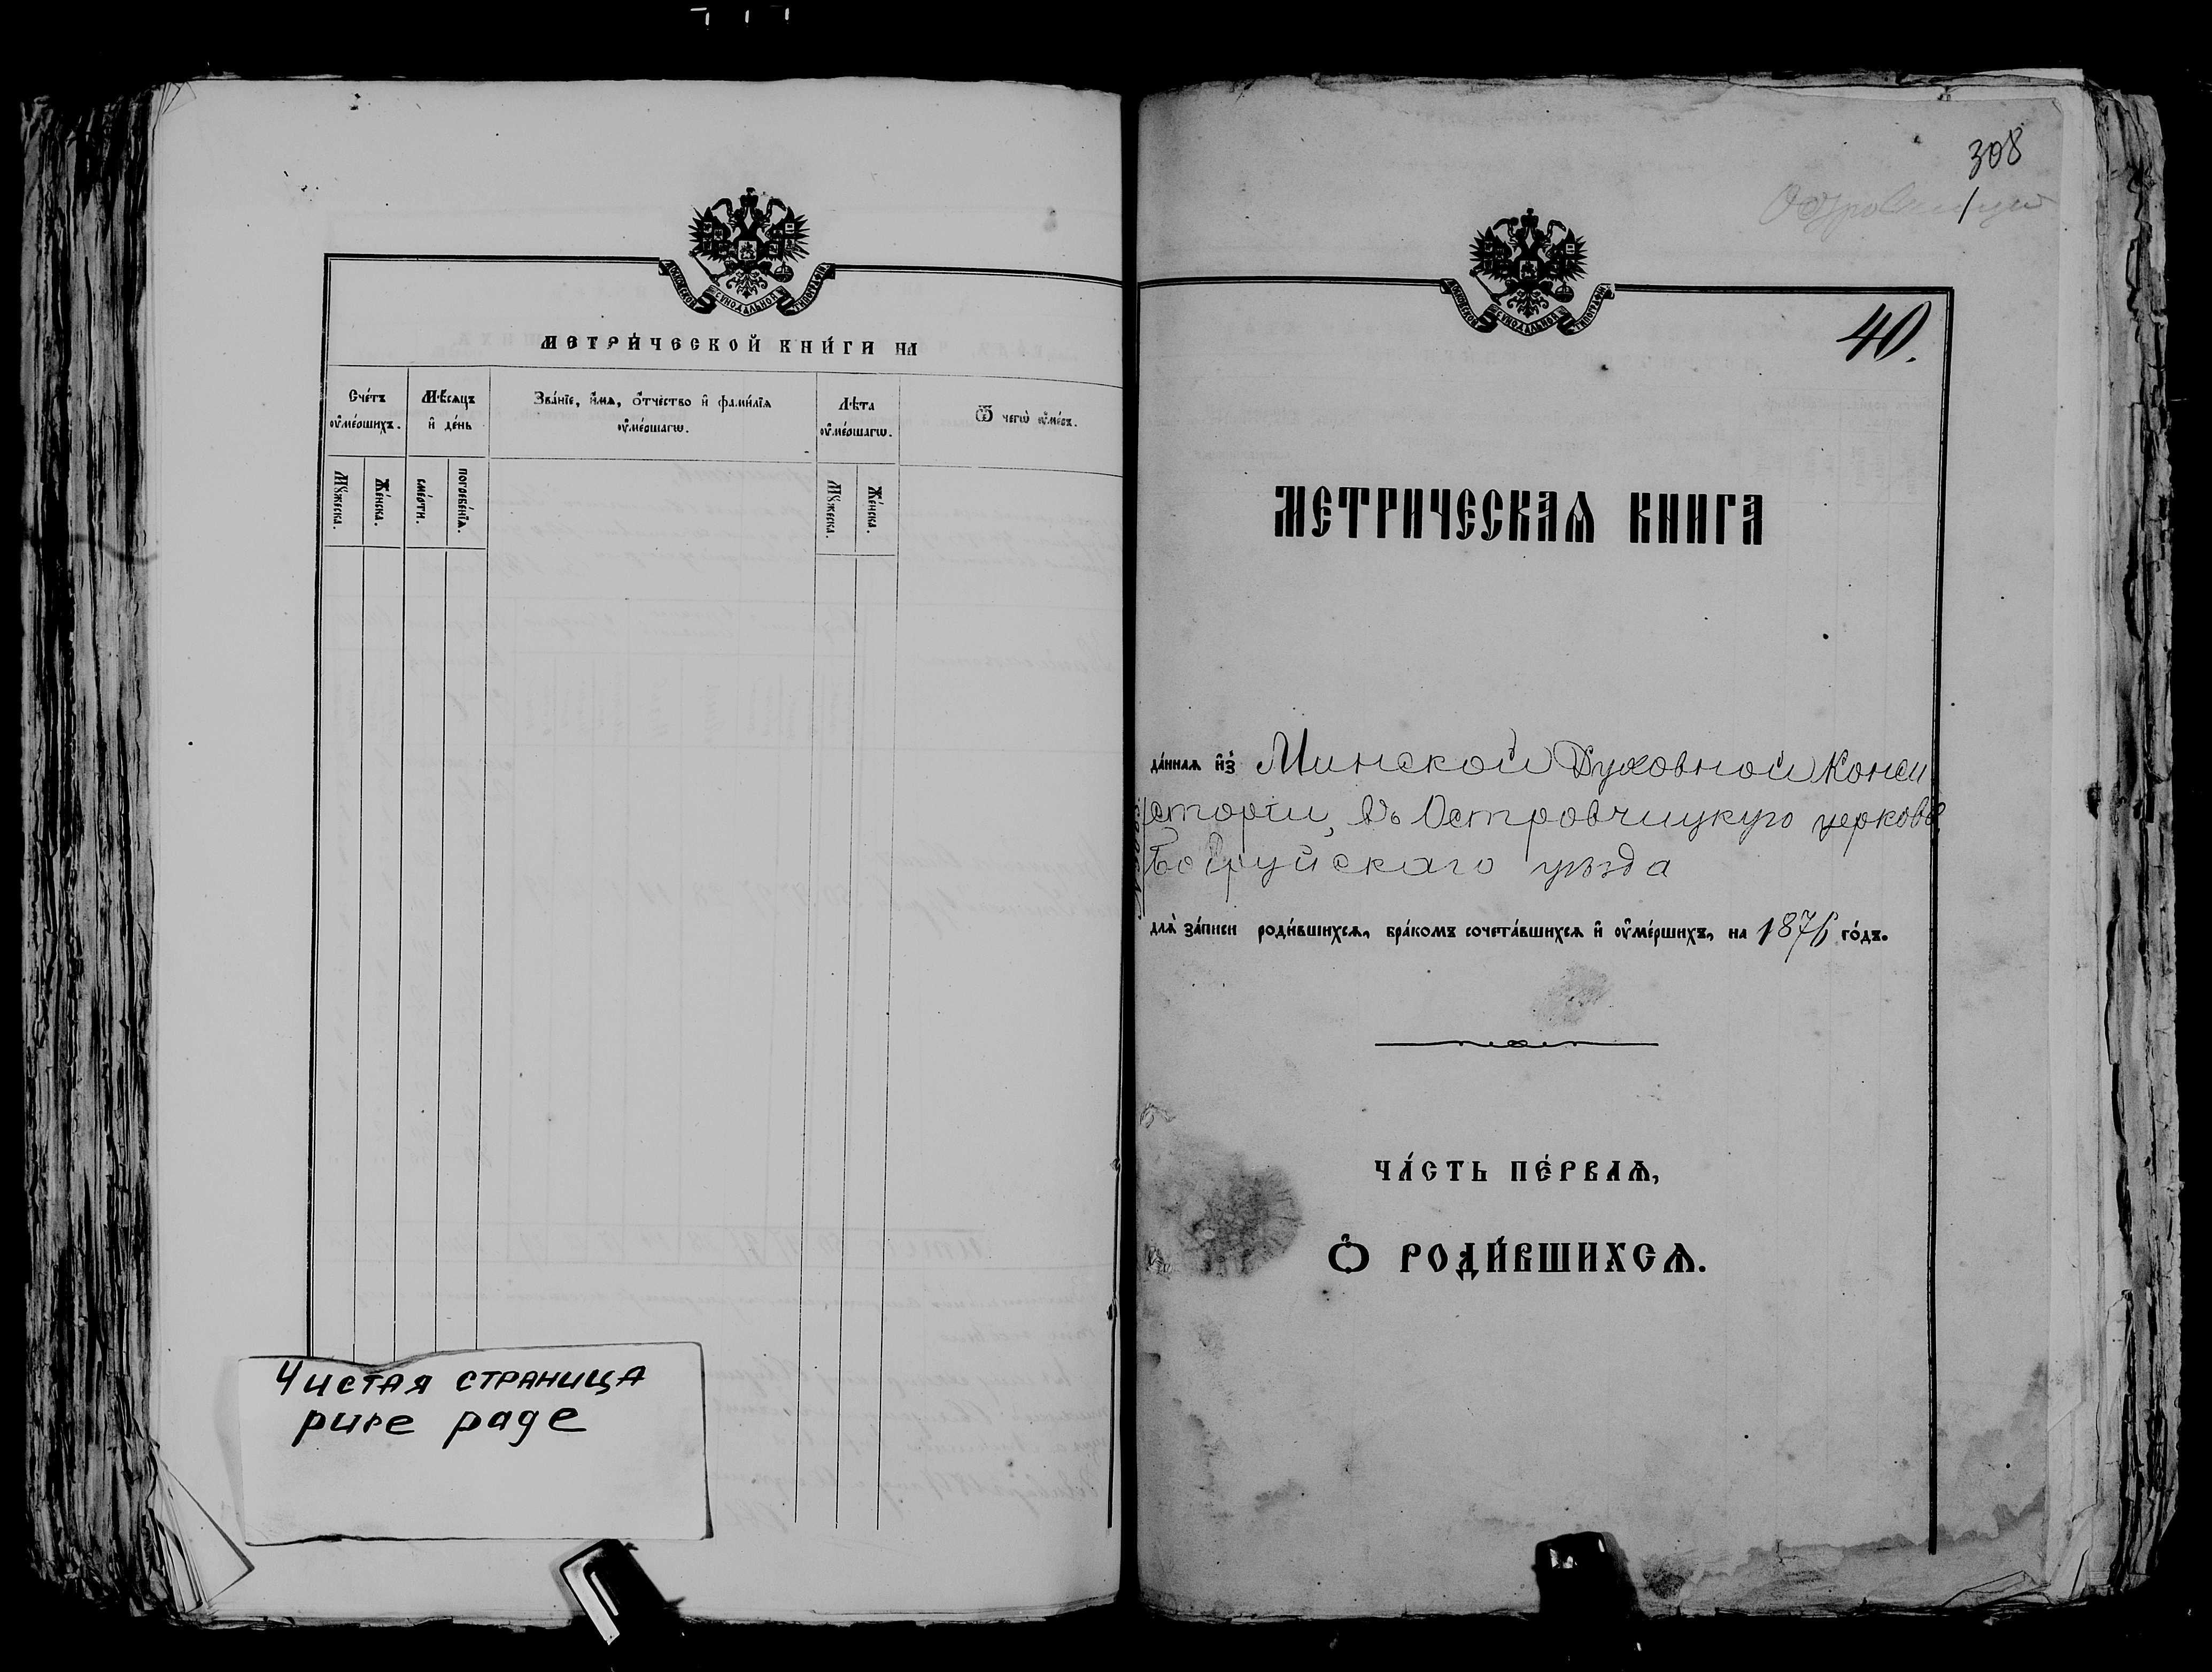 МОСКОВСКОЙ СѴНОДАЛЬНОЙ ТИПОГРАФІИ
МЕТРИ́ЧЕСКОЙ КНИ́ГИ НА
Сче́тъ ᲂу҆ме́ршихъ.
Мѣ́сяцъ и҆ де́нь
Зва́нїе, и҆́мѧ, ѻ҆́тчество и҆ фами́лїѧ ᲂу҆ме́ршагѡ.
Лѣ́та ᲂу҆ме́ршагѡ.
Ѿ чегѡ̀ ᲂу҆́меръ.
Мꙋ́жеска.
Же́нска.
сме́рти.
погребе́нїѧ.
Мꙋ́жеска.
Же́нска.
Чистая страница
pure page
308
1
МОСКОВСКОЙ СѴНОДАЛЬНОЙ ТИПОГРАФІИ
40.
МЕТРИЧЕСКАѦ КНИГА
да́ннаѧ и҆з̾ Минской Духовной Конси
сторіи, въ Островчицкую церковь
Бобруйскаго уѣзда
длѧ̀ за́писи роди́вшихсѧ, бра́комъ сочета́вшихсѧ и҆ ᲂу҆ме́ршихъ, на 1876 го́дъ.
ЧА́СТЬ ПЕ́РВАѦ,
Ѽ РОДИ́ВШИХСѦ.